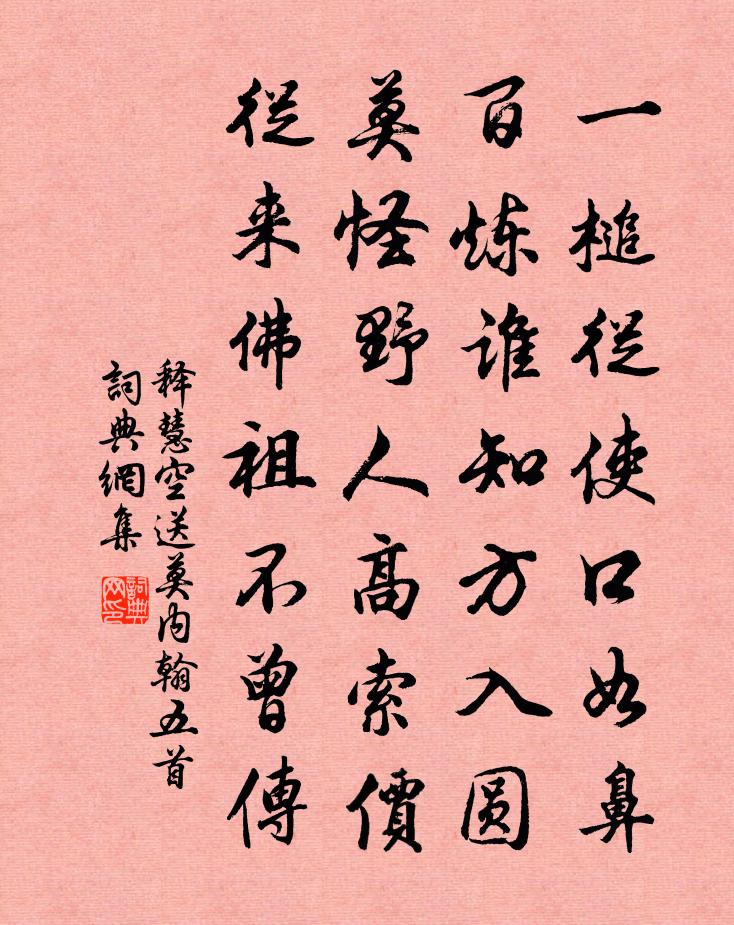 一槌從使口如鼻
百炼谁知方入圆
莫怪野人高索價
從来佛祖不曾傳
释慧空送莫内翰五首
詞典網集
詞典網印